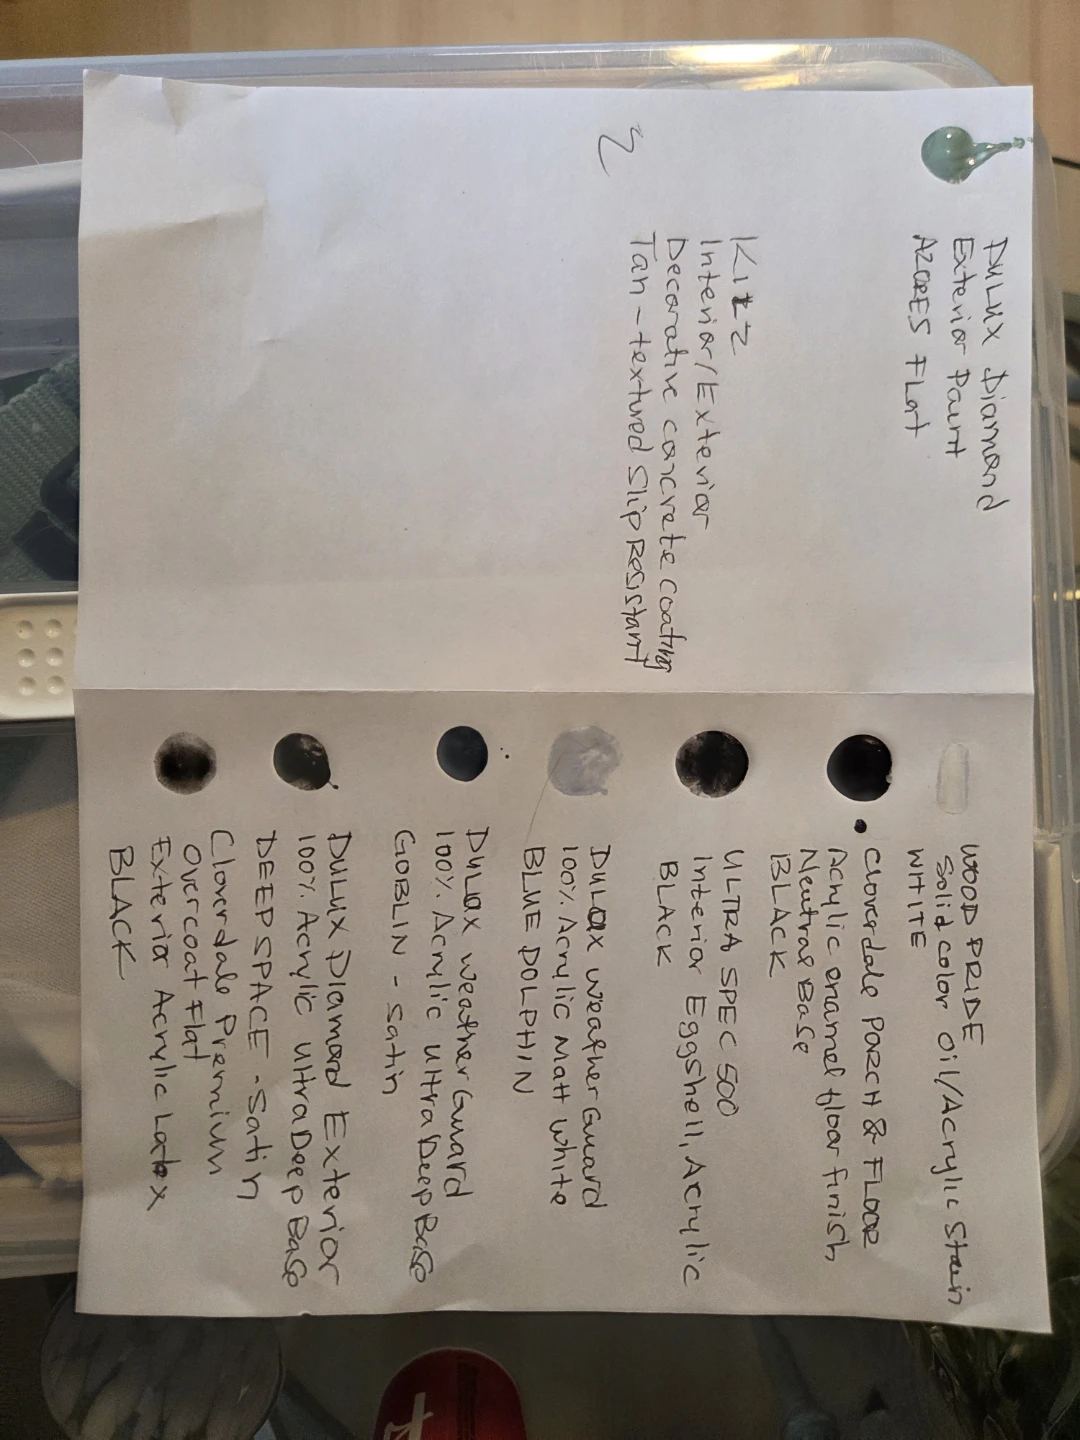 DULUX Diamond
Exterior Paint
AZORES FLat
KILZ
Interior/Exterior
Decorative concrete coating
Tan - textured Slip Resistant
WOOD PRIDE
Solid color Oil/Acrylic Stain
WHITE
Cloverdale PORCH & FLOOR
Acrylic enamel floor finish
Neutral Base
BLACK
ULTRA SPEC 500
Interior Eggshell, Acrylic
BLACK
DULUX Weather Guard
100% Acrylic Matt White
BLUE DOLPHIN
DULUX Weather Guard
100% Acrylic Ultra Deep Base
GOBLIN - Satin
DULUX Diamond Exterior
100% Acrylic Ultra Deep Base
DEEP SPACE - Satin
Cloverdale Premium
Overcoat Flat
Exterior Acrylic Latex
BLACK